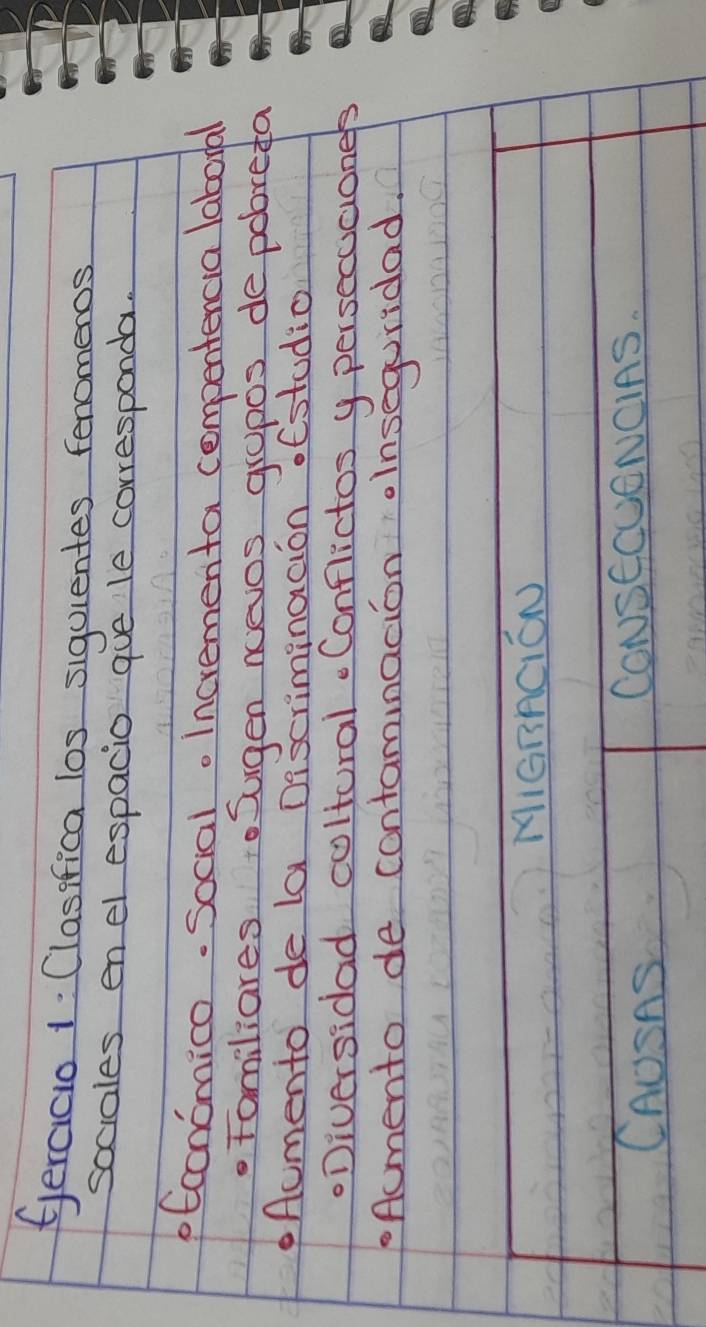 Ejercicio 1: Clasifica los siguientes fenomenos
sociales en el espacio que le corresponda.
• Económico • Social • Incrementa compentencia laboral
• Familiares • Surgen nuevos grupos de pobreza
• Aumento de la Discriminación • Estudio
• Diversidad cultural • Conflictos y persecuciones
• Aumento de contaminación • Inseguridad.
MIGRACIÓN
CAUSAS CONSECUENCIAS.